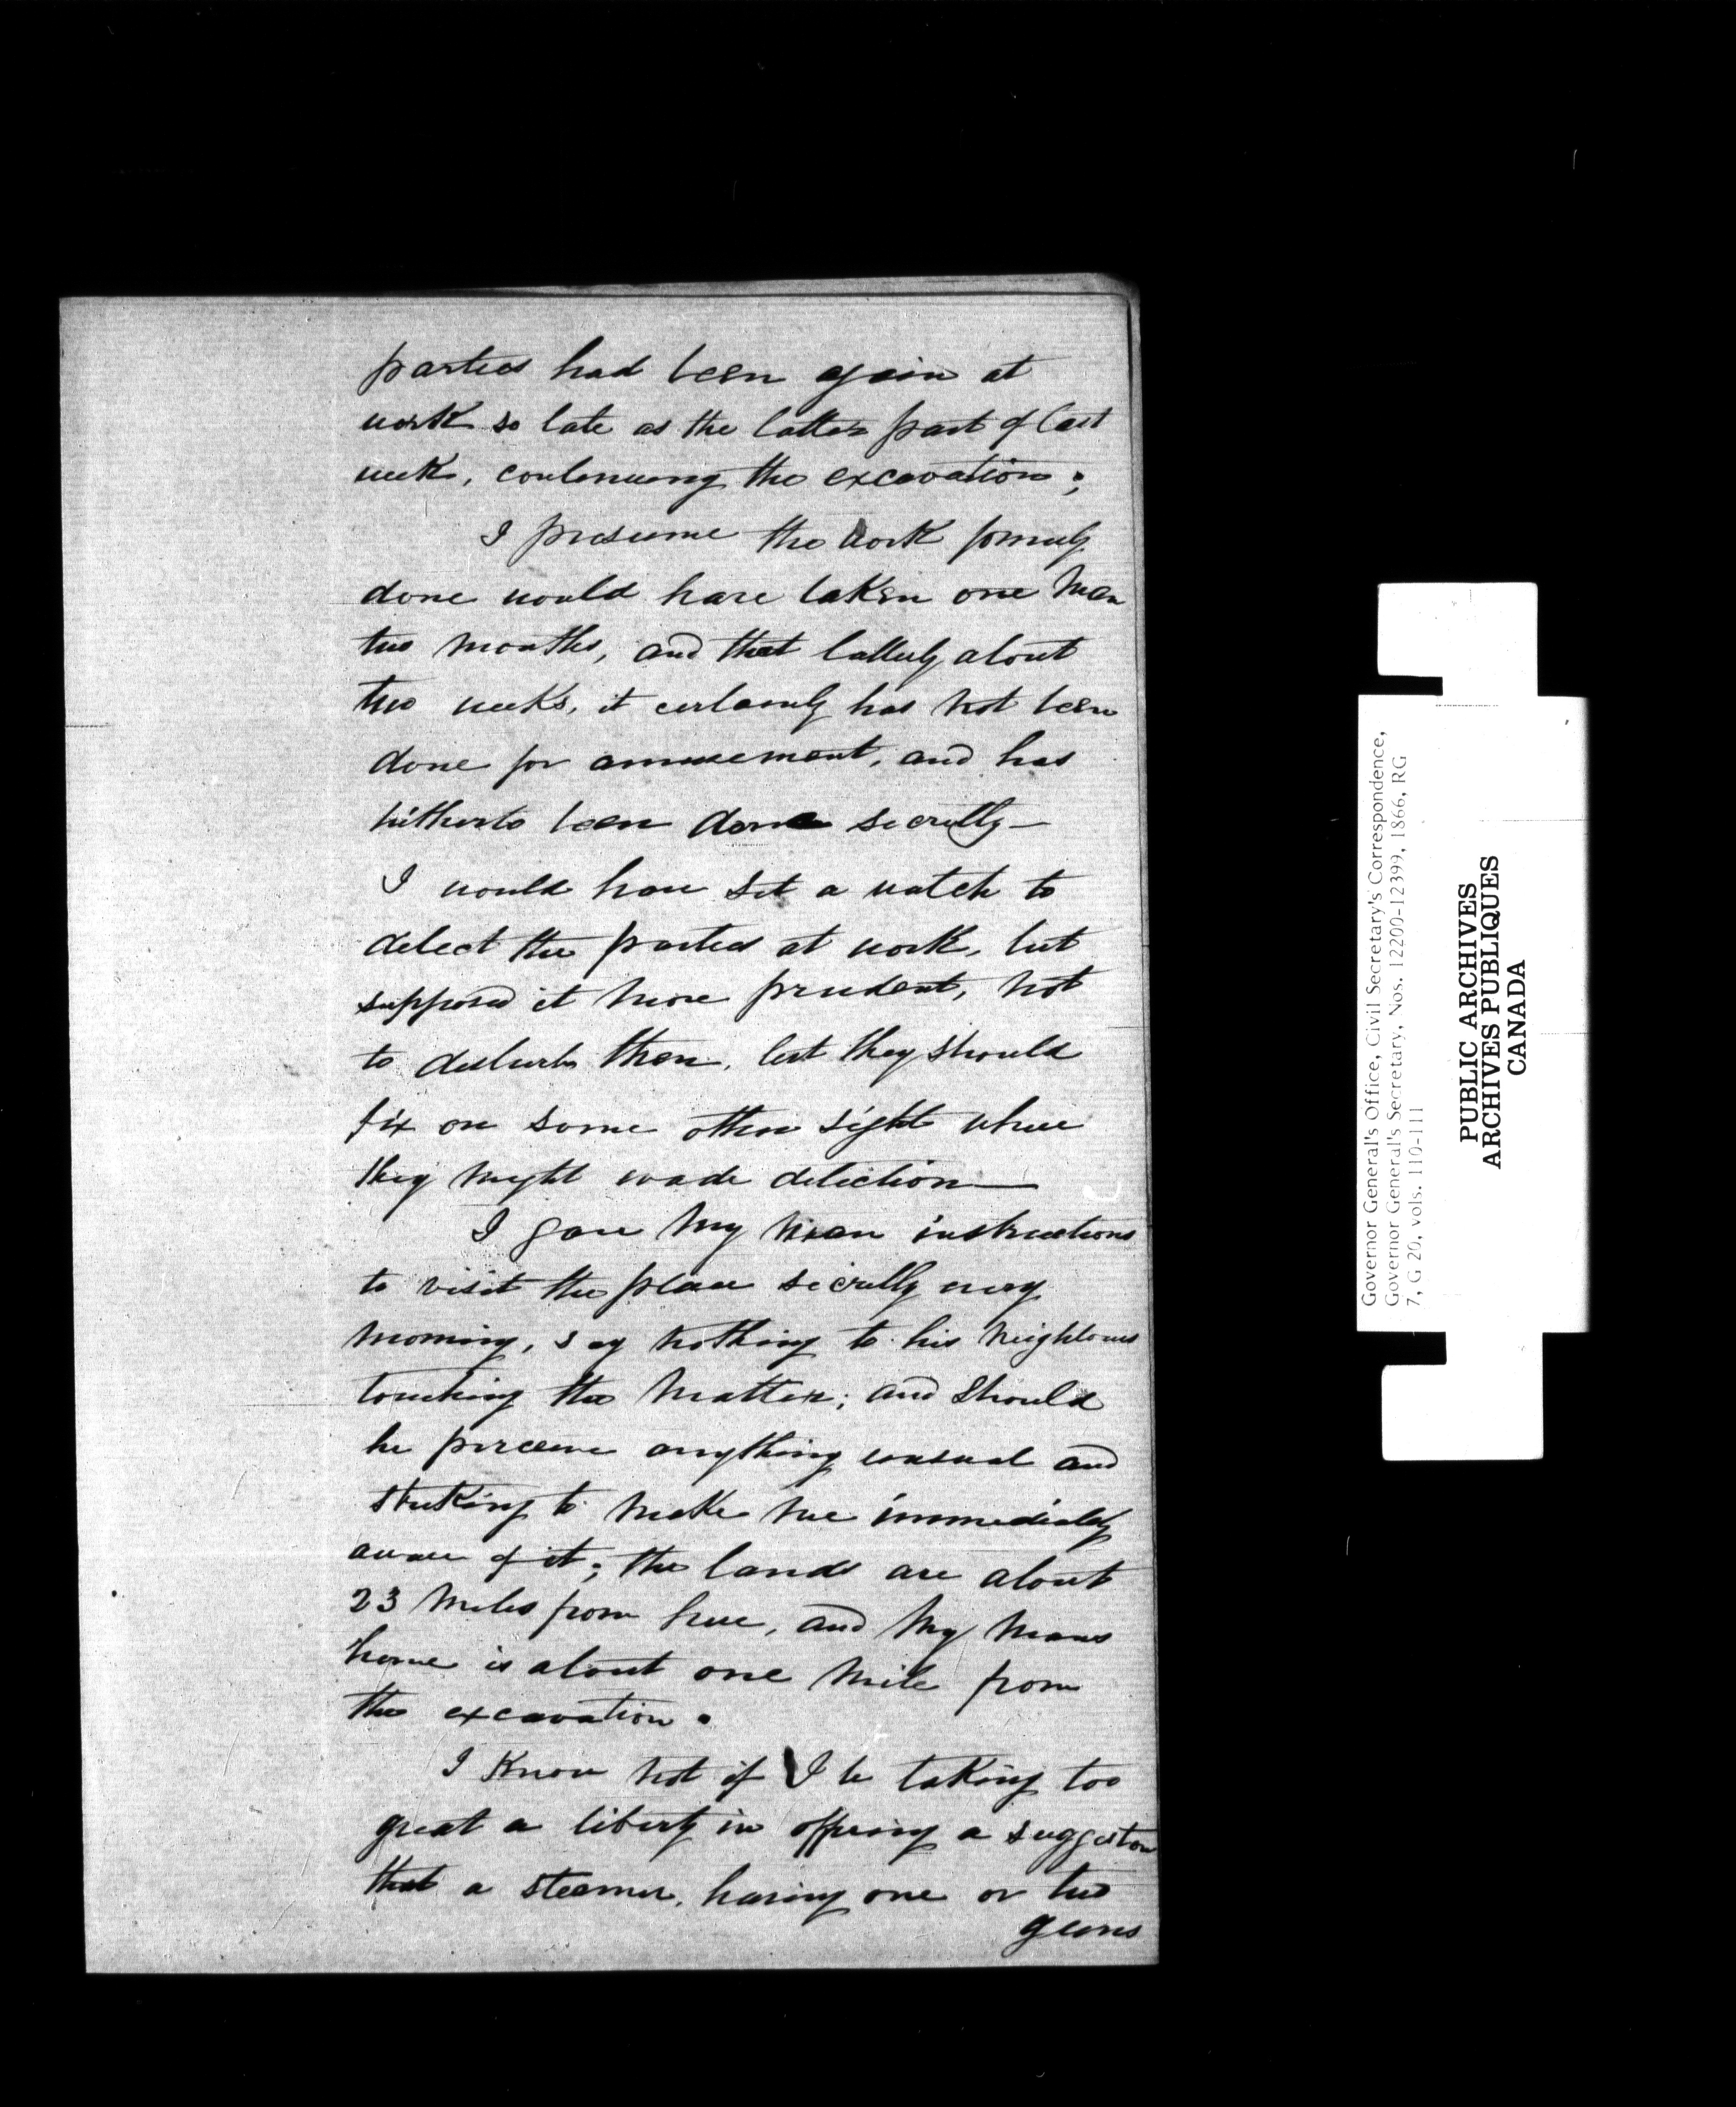 parties had been again at
work so late as the latter part of last
week, continuing the excavation;
I presume the work formerly
done would have taken one man
two months, and that latterly about
two weeks, it certainly has not been
done for amusement, and has
hitherto been done secretly—
I would have set a watch to
detect the parties at work, but
supposed it more prudent, not
to disturb them, lest they should
fix on some other sight where
they might evade detection—
I gave my man instructions
to visit the place secretly every
morning, say nothing to his neighbours
touching the matter; and should
he perceive anything unusual and
striking to make me immediately
aware of it; the lands are about
23 miles from here, and my mans
home is about one mile from
the excavation.
I know not if I be taking too
great a liberty in offering a suggestion
that a steamer, having one or two
guns
Governor General's Office, Civil Secretary's Correspondence,
Governor General's Secretary, Nos. 12200-12399, 1866, RG
7, G 20, vols. 110-111
PUBLIC ARCHIVES
ARCHIVES PUBLIQUES
CANADA